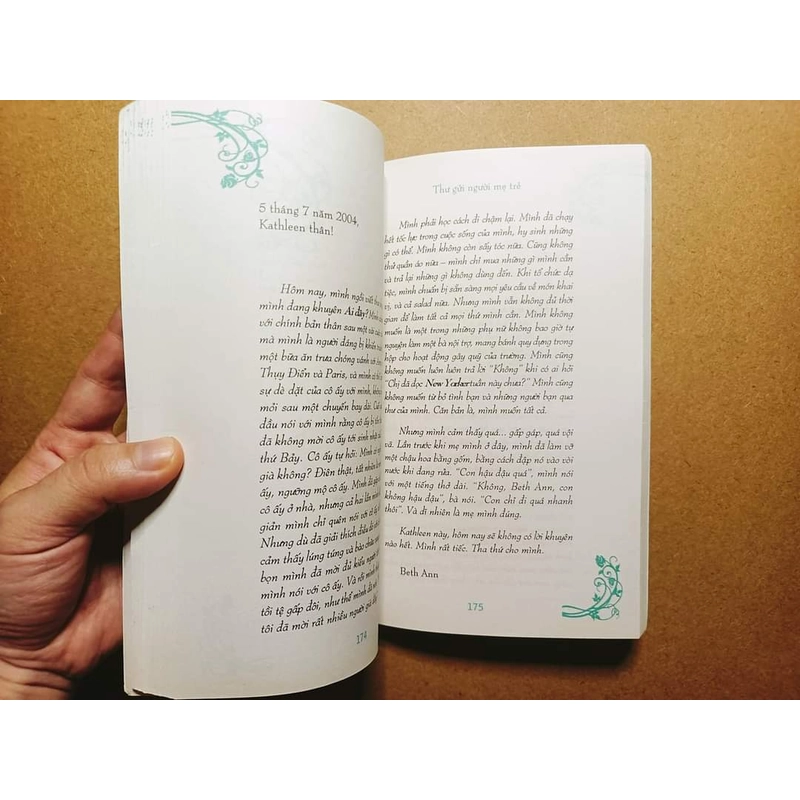 5 tháng 7 năm 2004,
Kathleen thân!
Hôm nay, mình ngồi viết
mình đang khuyên Ai đây? Mình
với chính bản thân sau một vài
mà mình là người đáng bị khiển
một bữa ăn trưa chóng vánh với
Thụy Điển và Paris, và mình có
sự dè dặt của cô ấy với mình,
mỏi sau một chuyến bay dài.
đầu nói với mình rằng cô ấy
đã không mời cô ấy tới sinh nhật
thứ Bảy. Cô ấy tự hỏi: Mình có
già không? Điên thật, tất nhiên
ấy, ngưỡng mộ cô ấy. Mình đã
ấy ở nhà, nhưng cả hai lần
giản mình chỉ quên nói với cô ấy
Nhưng dù đã giải thích điều đó
cảm thấy lúng túng và bào chữa
bọn mình đã mời đủ kiểu người
mình nói với cô ấy. Và rồi mình
tồi tệ gấp đôi, như thể mình đã
tôi đã mời rất nhiều người già
174
Thư gửi người mẹ trẻ
Mình phải học cách đi chậm lại. Mình đã chạy
hết tốc lực trong cuộc sống của mình, hy sinh những
gì có thể. Mình không còn sấy tóc nữa. Cũng không
thử quần áo nữa – mình chỉ mua những gì mình cần
và trả lại những gì không dùng đến. Khi tổ chức dạ
tiệc, mình chuẩn bị sẵn sàng mọi yêu cầu về món khai
vị, và cả salad nữa. Nhưng mình vẫn không đủ thời
gian để làm tất cả mọi thứ mình cần. Mình không
muốn là một trong những phụ nữ không bao giờ tự
nguyện làm một bà nội trợ, mang bánh quy đựng trong
hộp cho hoạt động gây quỹ của trường. Mình cũng
không muốn luôn luôn trả lời "Không" khi có ai hỏi
"Chị đã đọc New Yorker tuần này chưa?" Mình cũng
không muốn từ bỏ tình bạn và những người bạn qua
thư của mình. Căn bản là, mình muốn tất cả.
Nhưng mình cảm thấy quá... gấp gáp, quá vội
vã. Lần trước khi mẹ mình ở đây, mình đã làm vỡ
một chậu hoa bằng gốm, bằng cách đập nó vào vòi
nước khi đang rửa. "Con hậu đậu quá", mình nói
với một tiếng thở dài. "Không, Beth Ann, con
không hậu đậu", bà nói. "Con chỉ đi quá nhanh
thôi". Và dĩ nhiên là mẹ mình đúng.
Kathleen này, hôm nay sẽ không có lời khuyên
nào hết. Mình rất tiếc. Tha thứ cho mình.
Beth Ann
175